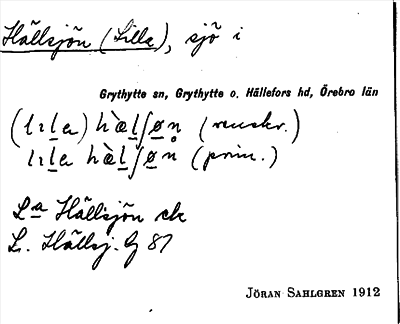 Hällsjön (Lilla), sjö i
Grythytte sn, Grythytte o. Hällefors hd, Örebro län
(lıla) hæ̀lʃøn̥ (renskr.)
lıla hæ̀lʃøn (prim.)
La Hällsjön ek
L. Hällsj. G 87
JÖRAN SAHLGREN 1912